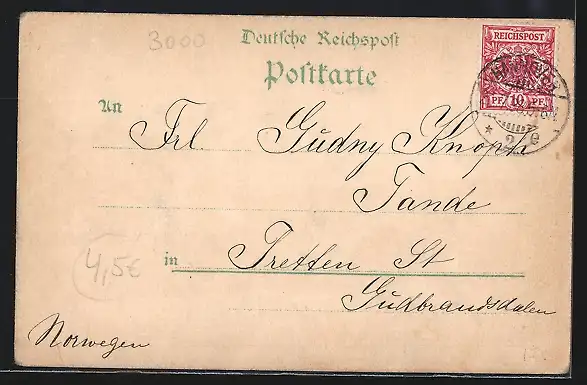 3000
Deutsche Reichspost
Postkarte
REICHSPOST
PF 10 PF
* 2 e
An
Frl Gudny Knoph
Tande
in Tretten St
Gudbrandsdalen
4,5€
Norwegen